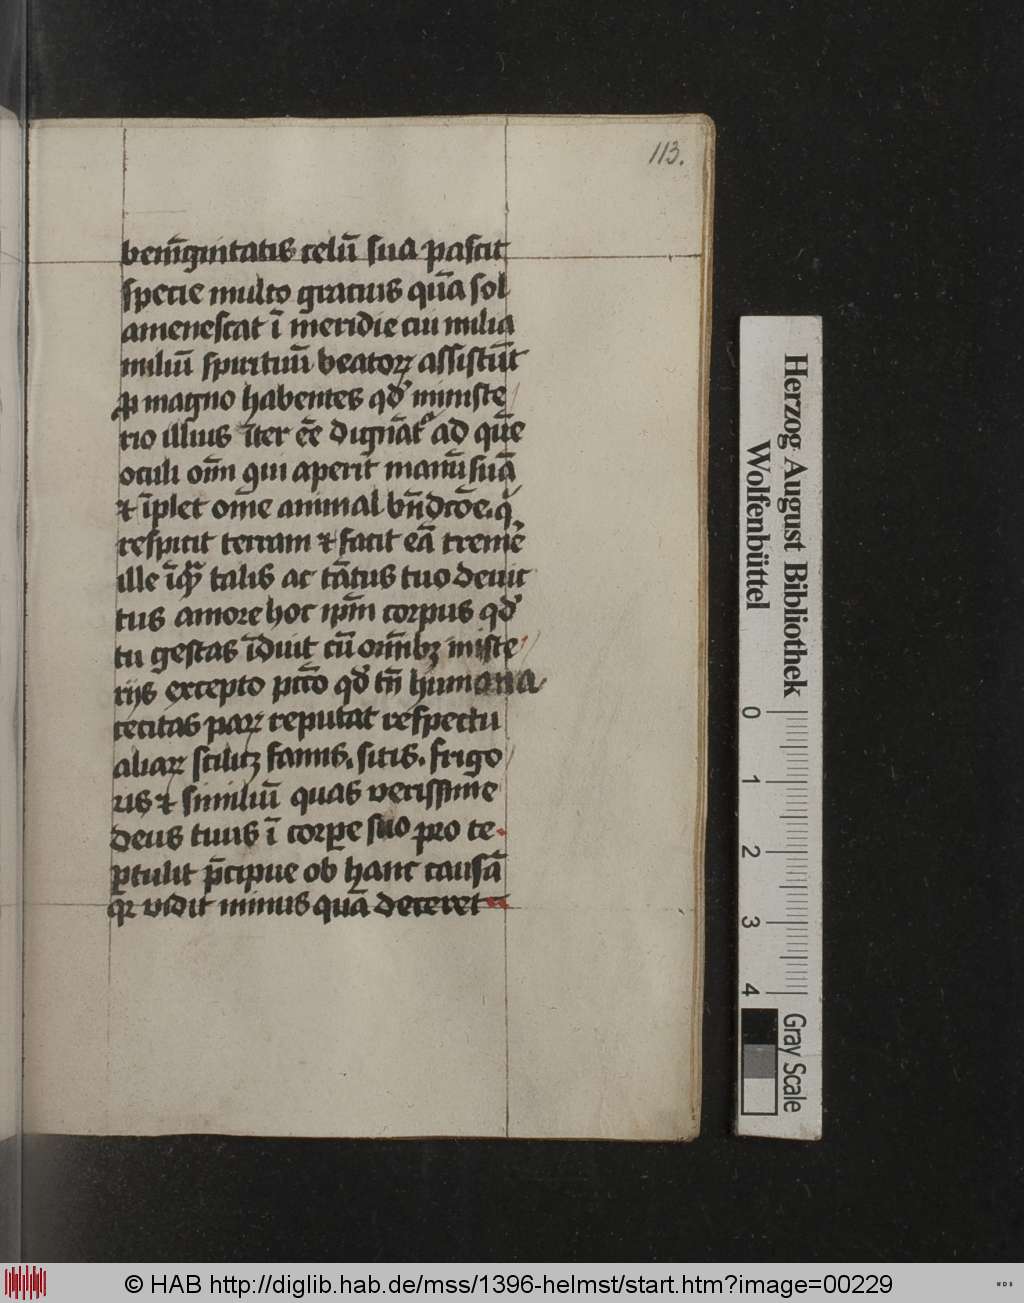 113.
benīgnitatis celū sua pascit
specie multo gratius quā sol
amenescat ī meridie cui milia
miliū spirituū beatoꝝ assistūt
ꝓ magno habentes qd' ministe/
rio illius īter eē dignāt᷒ ad quē
oculi om̄ qui aperit manū suā
⁊ īplet om̄e animal bn̄dcōe. qͥ
respicit terram ⁊ facit eā tremē
ille īqͣꝫ talis ac tātus tuo deuic
tus amore hoc ip̄m corpus qd'
tu gestas īduit cū om̄ibꝫ miste/
rijs excepto pctō qd' tn̄ humana
cecitas paꝝ reputat respectu
aliaꝝ scilicꝫ famis. sitis. frigo/
ris ⁊ similiū quas verissime
deus tuus ī corpꝑe suo pro te
ꝑtulit p̄cipue ob hanc causā
qꝛ vidit minus quā deceret
Herzog August Bibliothek
Wolfenbüttel
0 1 2 3 4
Gray Scale
© HAB http://diglib.hab.de/mss/1396-helmst/start.htm?image=00229
WDB